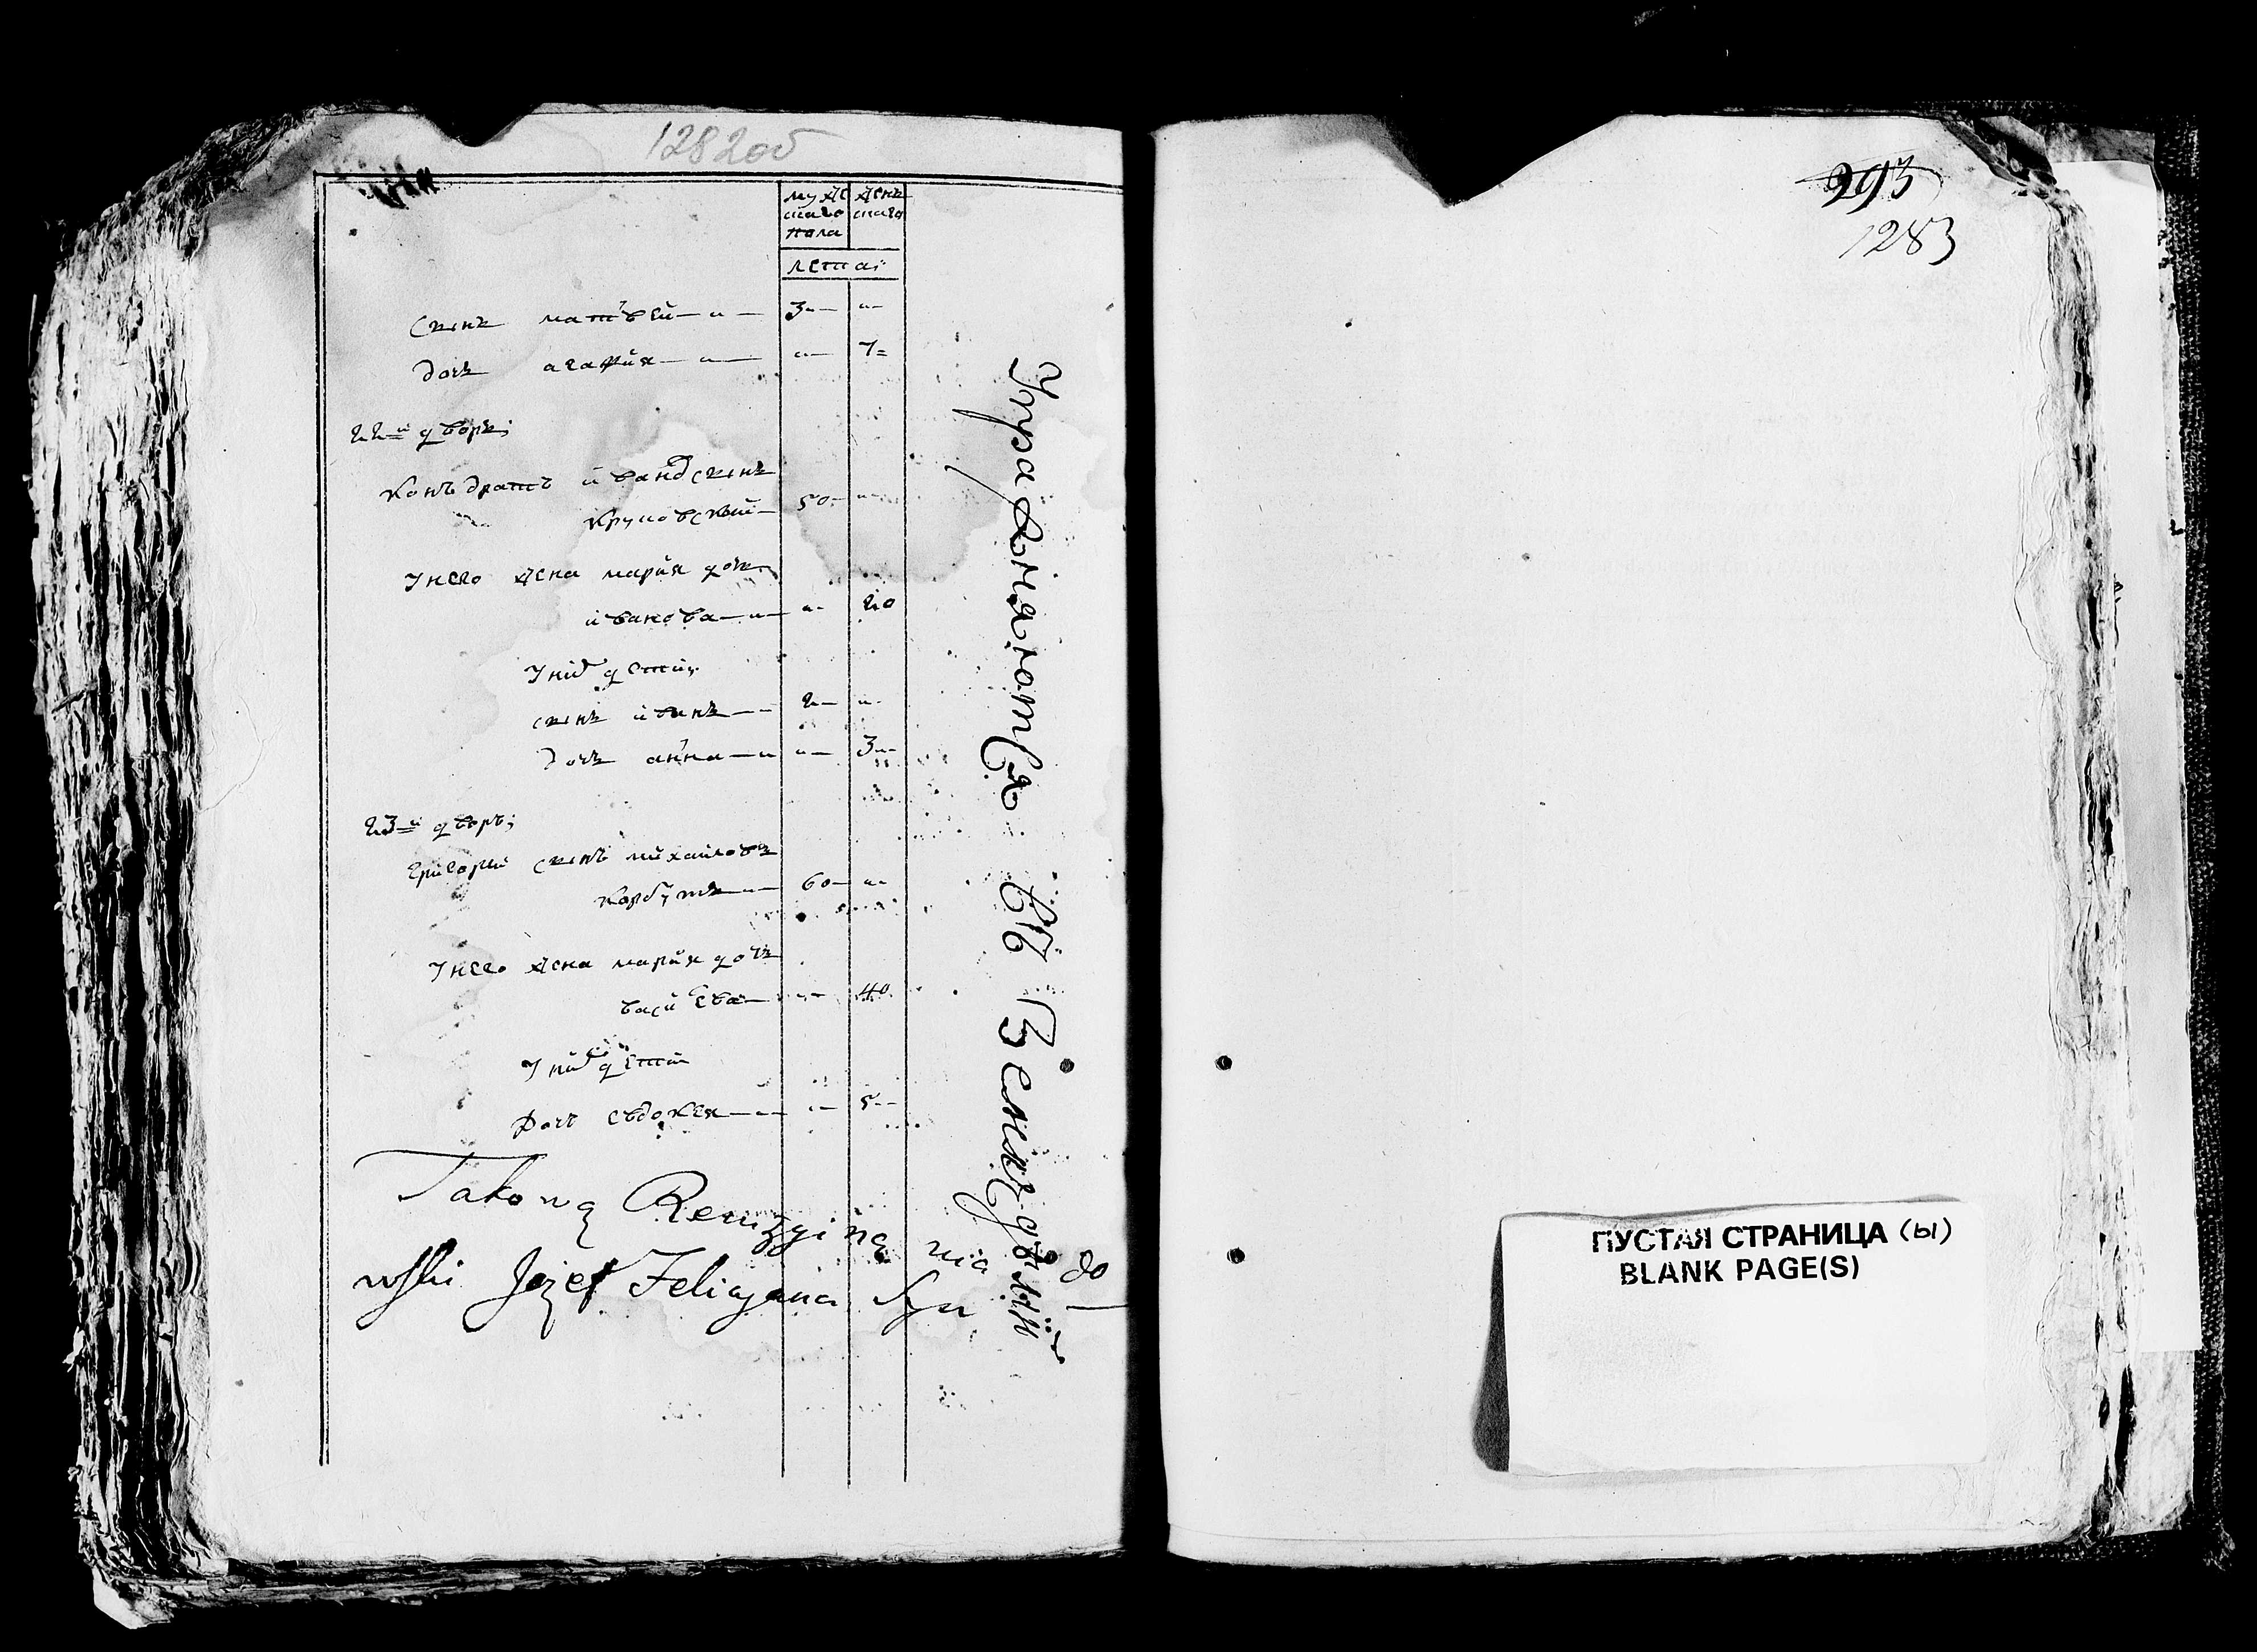 1282об
мужескаго пола
женскаго
лета;
сынъ матъвей 3
дочь агафия 7
22й дворъ;
Конъдратъ иванов сынъ
круповский 50
У него жена мария дочь
иванова 20
У них дети;
сынъ иванъ 2
дочь анна 3
23й дворъ;
григорий сынъ михайловъ
корбутъ 60
У него жена мария дочь
васильева 40
У них дети
дочь евдокея 5
Takową Rewizyiną
wski Jozef Felicyana Syn
до
293
1283
ПУСТАЯ СТРАНИЦА (Ы)
BLANK PAGE(S)